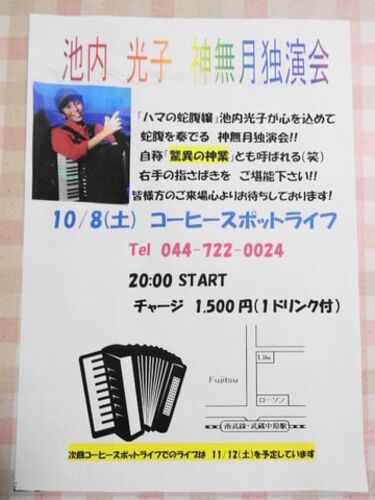 池内 光子 神無月独演会
「ハマの蛇腹嬢」池内光子が心を込めて
蛇腹を奏でる 神無月独演会!!
自称「驚異の神業」とも呼ばれる(笑)
右手の指さばきを ご堪能下さい!!
皆様方のご来場心よりお待ちしております!
10/8(土) コーヒースポットライフ
Tel 044-722-0024
20:00 START
チャージ 1.500円(1ドリンク付)
Life
Fujitsu
ローソン
南武線・武蔵中原駅
次回コーヒースポットライフでのライブは 11/12(土)を予定しています